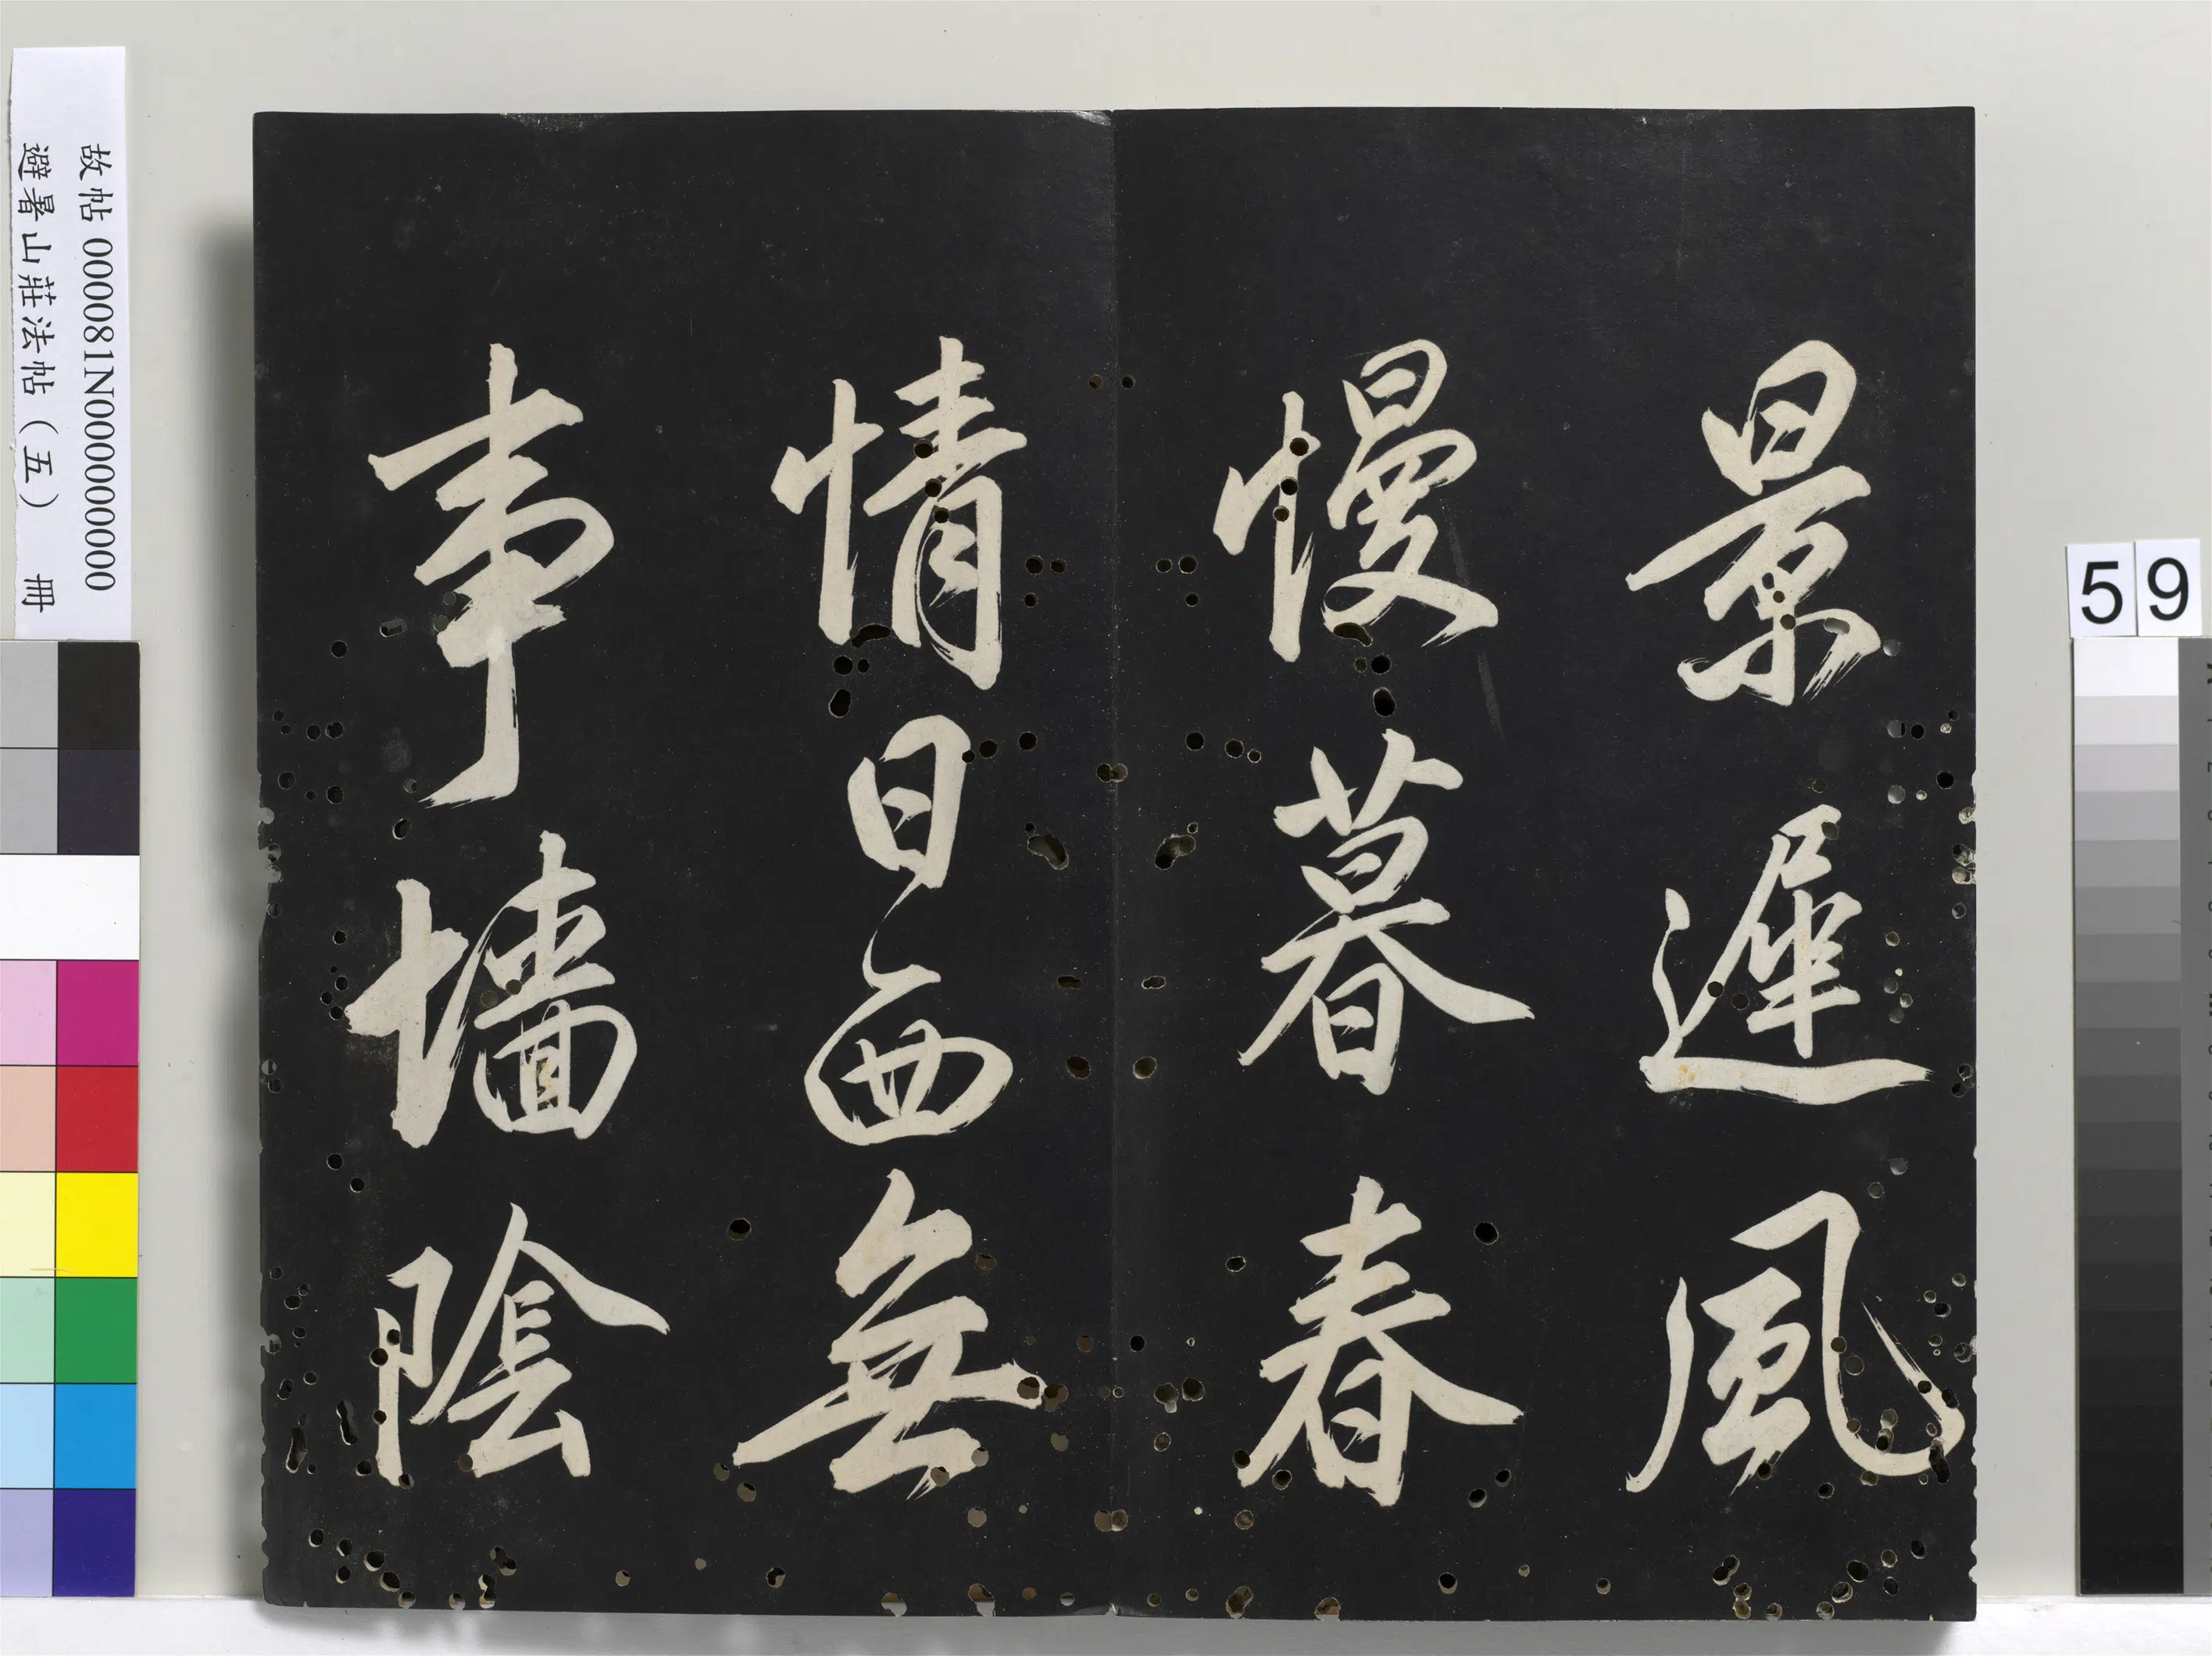 景遲風
慢暮春
情日西無
事墻陰
故帖 000081N000000000
避暑山莊法帖（五） 冊
59